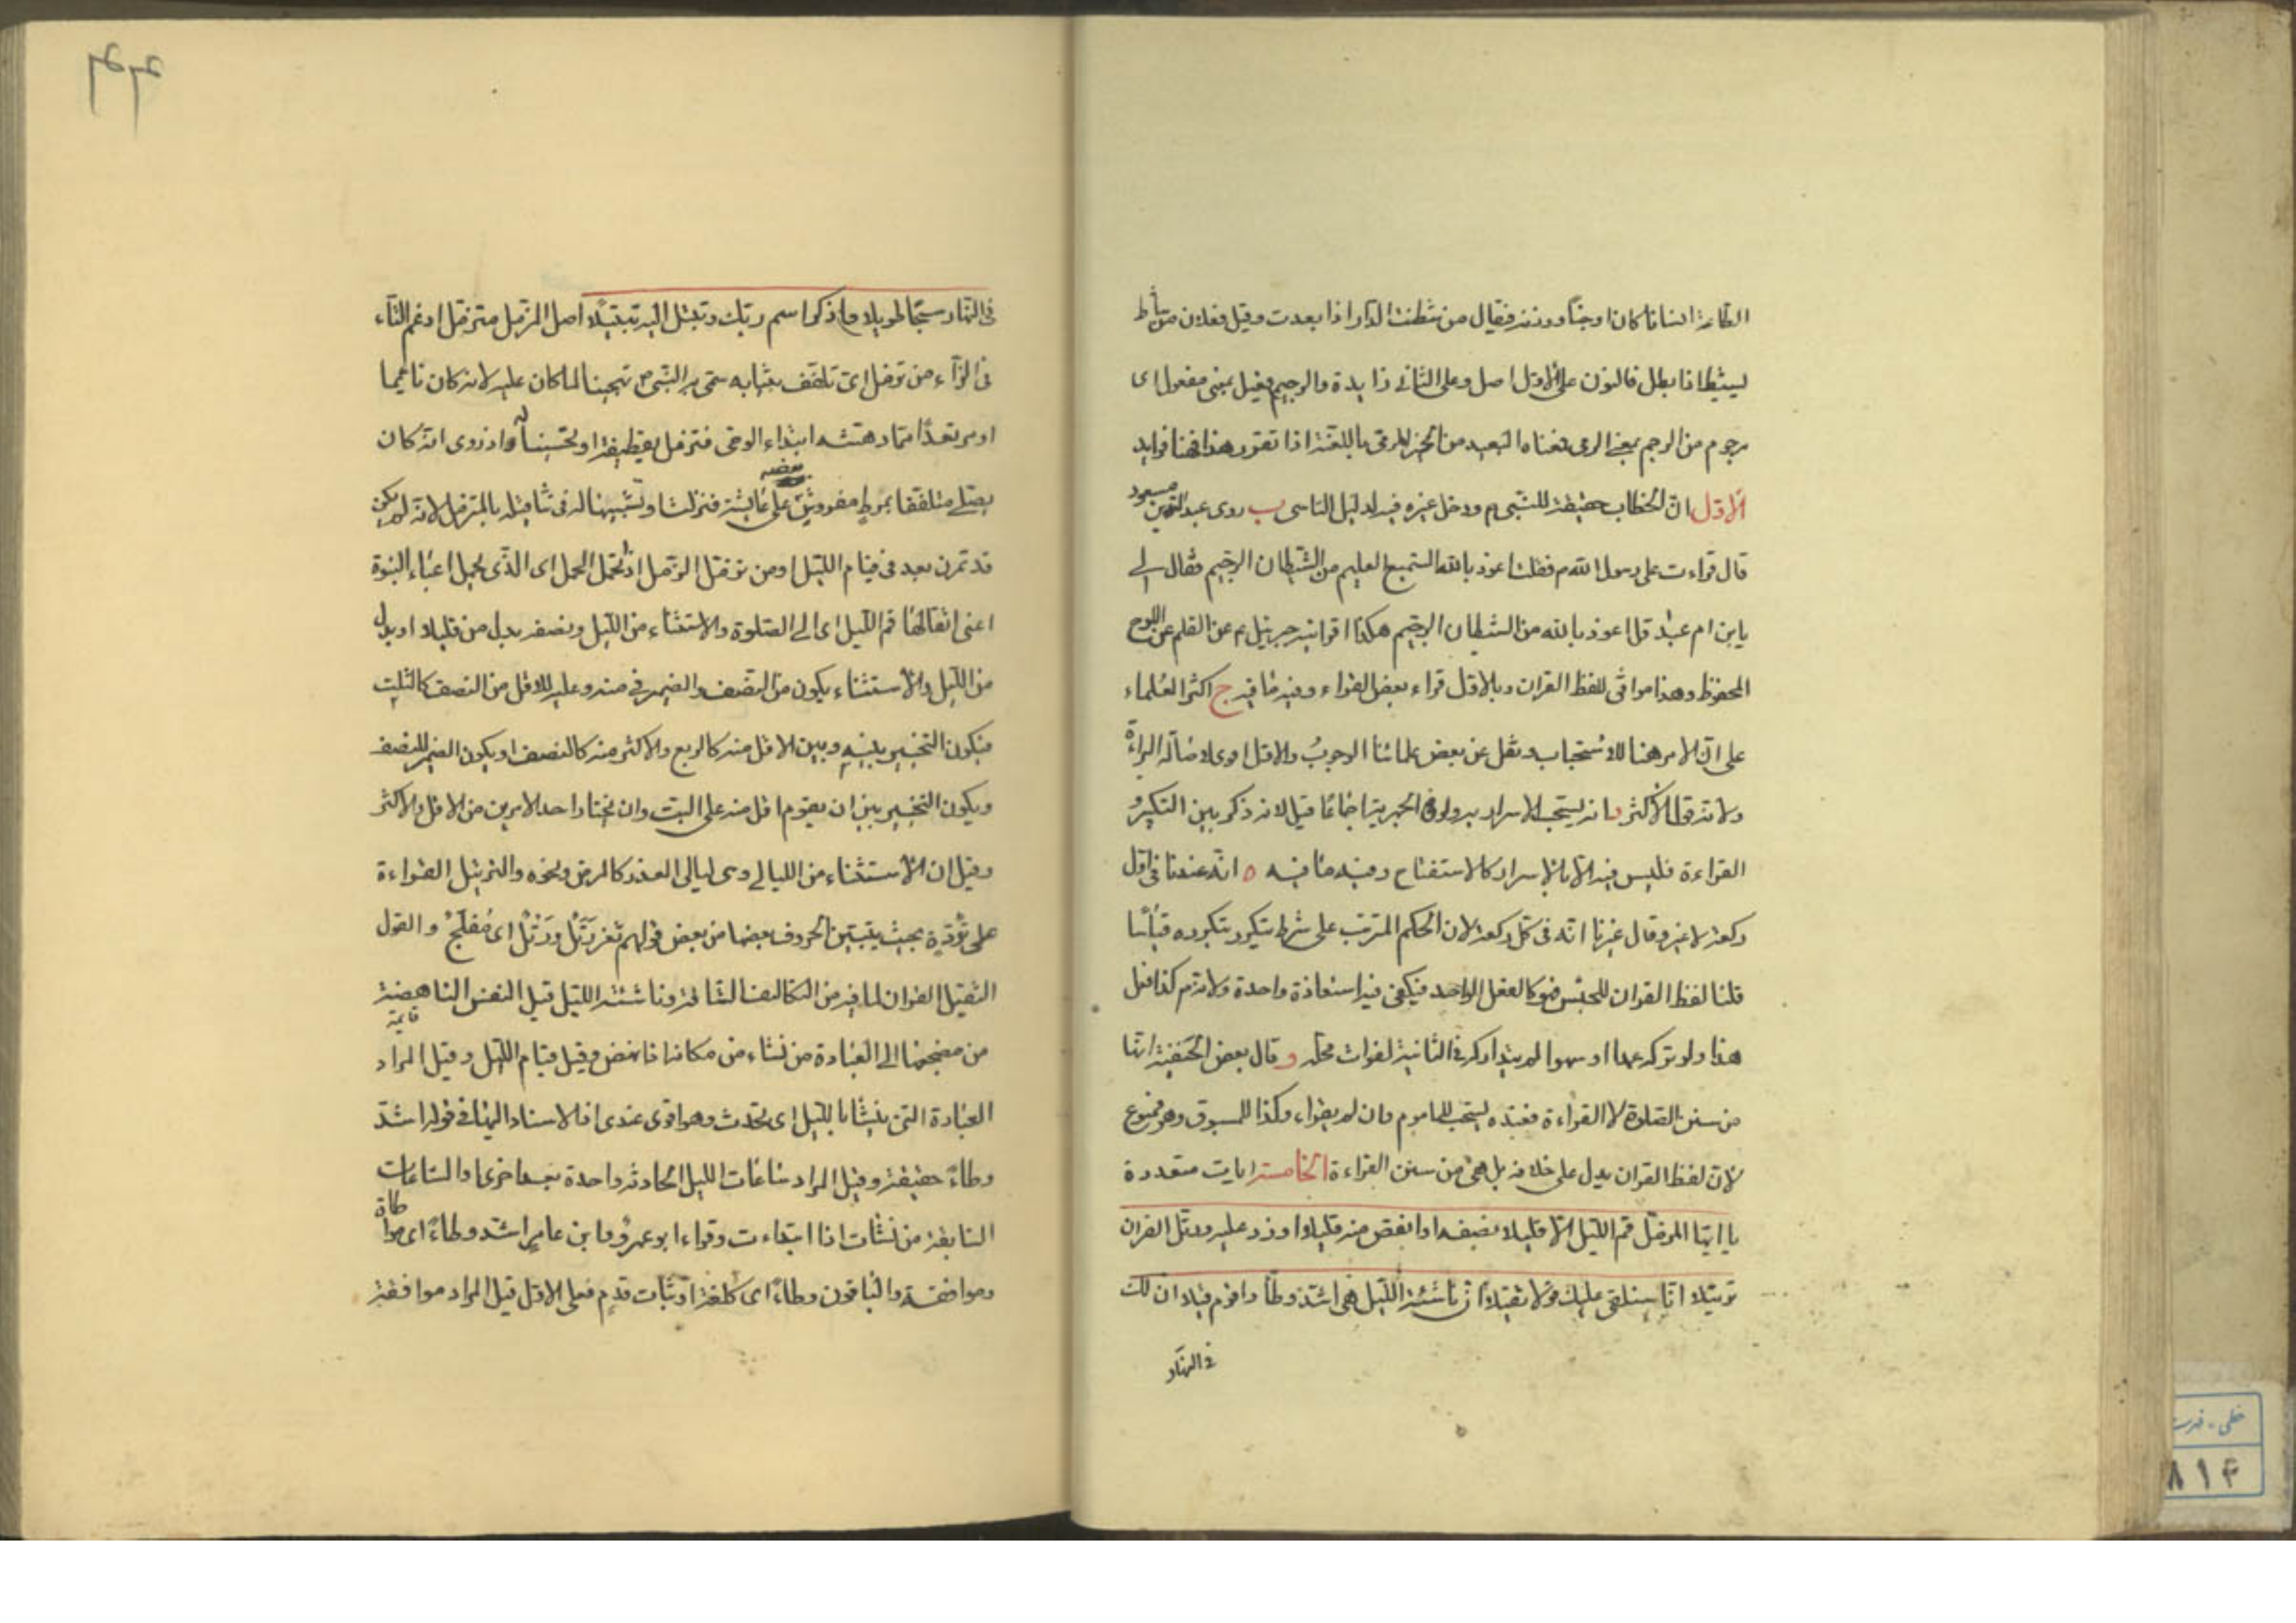 الطاعة انسانا كان او جنا ووزنه فيعال من شطنت الدار اذا بعدت وقيل فعلان من شاط
يشيط اذا بطل فالنون على الاول اصل وعلى الثاني زايدة والرجيم فعيل بمعنى مفعول اى
مرجوم من الرجم بمعنى الرمى معناه البعيد من الخير المرمى باللعنة اذا تقرر هذا فهنا فوايد
الاول ان الخطاب حقيقة للنبى م ودخل غيره فيه لدليل التاسى ب روى عبد الله بن مسعود
قال قراءت على رسول الله م فقلت اعوذ بالله السميع العليم من الشيطان الرجيم فقال لى
يا بن ام عبد قل اعوذ بالله من الشيطان الرجيم هكذا اقرانيه جبرئيل م عن القلم عن اللوح
المحفوظ وهذا موافق للفظ القران وبالاول قراء بعض القراء وفيه ما فيه ج اكثر العلماء
على ان الامر هنا للاستحباب ونقل عن بعض علمائنا الوجوب والاول اولى لاصالة البراءة
ولانه قول الاكثر د انه يستحب الاسرار به ولو فى الجهرية اجماعا قيل لانه ذكر بين التكبير و
القراءة فليس فيه الا الاسرار كالاستفتاح وفيه ما فيه ه انه عندنا فى اول
ركعة لا غير وقال غيرنا انه فى كل ركعة لان الحكم المترتب على شرط يتكرر بتكرره قياسا
قلنا لفظ القران للجنس فهو كالفعل الواحد فيكفى فيه استعاذة واحدة ولانه م كذا فعل
هذا ولو تركه عمدا او سهوا لم يتداركه فى الثانية لفوات محله و قال بعض الحنفية انها
من سنن الصلوة لا القراءة فعنده يستحب للماموم وان لم يقراء وكذا للمسبوق وهو ممنوع
لان لفظ القران يدل على خلافه بل هى من سنن القراءة الخامسة ايات متعددة
يا ايها المزمل قم الليل الا قليلا نصفه او انقص منه قليلا او زد عليه ورتل القران
ترتيلا انا سنلقى عليك قولا ثقيلا ان ناشئة الليل هى اشد وطأ واقوم قيلا ان لك
فى النهار
فى النهار سبحا طويلا واذكر اسم ربك وتبتل اليه تبتيلا اصل المزمل متزمل ادغم التاء
فى الزاء من تزمل اى تلفف بثيابه سمى به النبى ص تهجينا لما كان عليه لانه كان نائما
او مرتعدا مما دهشته ابتداء الوحى فتزمل بقطيفة او تحسينا له اذ روى انه كان
يصلى متلففا بمرط مفروش بعضه على عايشة فنزلت او تشبيها له فى تثاقله بالمتزمل لانه لم يكن
قد تمرن بعد فى قيام الليل او من تزمل الزمل اذا تحمل الحمل اى الذى يحمل اعباء النبوة
اعنى اثقالها قم الليل اى الى الصلوة والاستثناء من الليل ونصفه بدل من قليلا او بدل
من الليل والاستثناء يكون من النصف والضمير فى منه وعليه للاقل من النصف كالثلث
فيكون التخيير بينه وبين الاقل منه كالربع والاكثر منه كالنصف او يكون الضمير للنصف
ويكون التخيير بين ان يقوم اقل منه على البت وان يختار احد الامرين من الاقل والاكثر
وقيل ان الاستثناء من الليالى وهى ليالى العذر كالمرض ونحوه والترتيل القراءة
على تؤدة بحيث يتبين الحروف بعضها من بعض قولهم ثغر رَتَل ورَتْل اى مفلج والقول
الثقيل القران لما فيه من التكاليف الشاقة وناشئة الليل قيل النفس الناهضة
من مضجعها الى العبادة من نشاء من مكانه اذا نهض وقيل قيام الليل وقيل المراد
قايمة
العبادة التى ينشأ بالليل اى تحدث وهو اقوى عندى اذ الاسناد اليها فى قوله اشد
وطاء حقيقة وقيل المراد ساعات الليل الحادثه واحدة بعد اخرى او الساعات
السابقة من نشات اذا ابتداءت وقراء ابو عمرو وابن عامر اشد وطاء اى مواطاة
وموافقة والباقون وطاء اى كلفة او ثبات قدم فعلى الاول قيل المراد موافقة
خطى - فهرست
۸۱۴